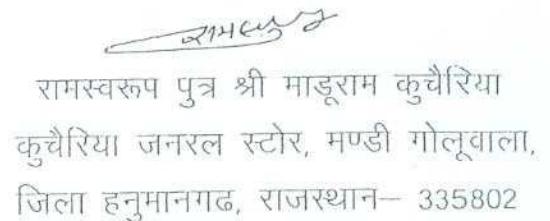 रामस्वरूप
रामस्वरूप पुत्र श्री माडूराम कुचैरिया
कुचैरिया जनरल स्टोर, मण्डी गोलूवाला,
जिला हनुमानगढ, राजस्थान– 335802